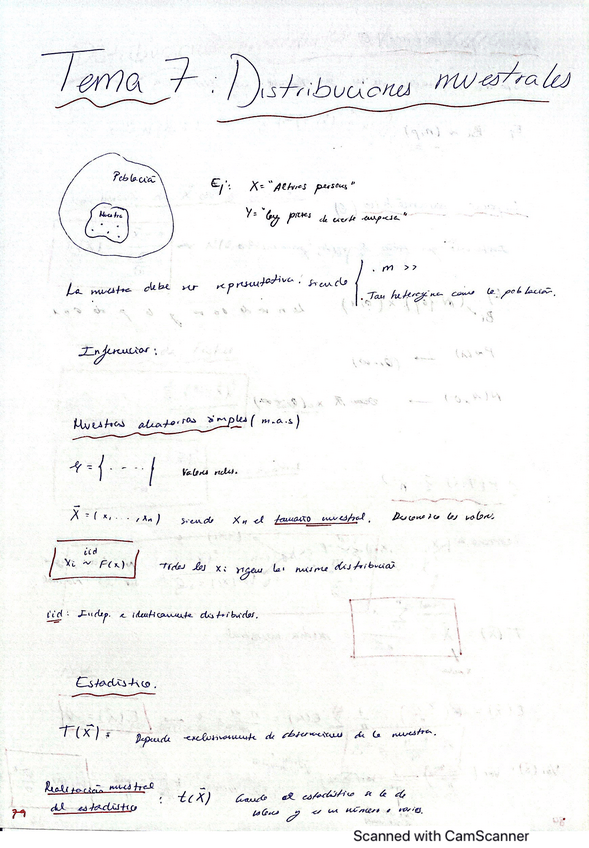 Tema 7: Distribuciones muestrales
Población
Muestra
Ej: X= "Alturas personas"
Y= "de cierta empresa"
La muestra debe ser representativa. siendo
. m >>
. Tan heterogenea como la población.
Inferenciar:
Muestras aleatorias simples (m.a.s)
= { ---- } Valores reales.
X⃗ = (x₁, ..., xₙ) siendo Xₙ el tamaño muestral. Desconozco los valores.
iid
Xi ~ F(x) Todos los Xi siguen la misma distribución
iid: Indep. e identicamente distribuidos.
Estadístico.
T(X⃗) = Depende exclusivamente de observaciones de la muestra.
Realización muestral
del estadístico : t(X⃗) Cuando el estadístico se le da
valores y es un número o varios.
79
Scanned with CamScanner